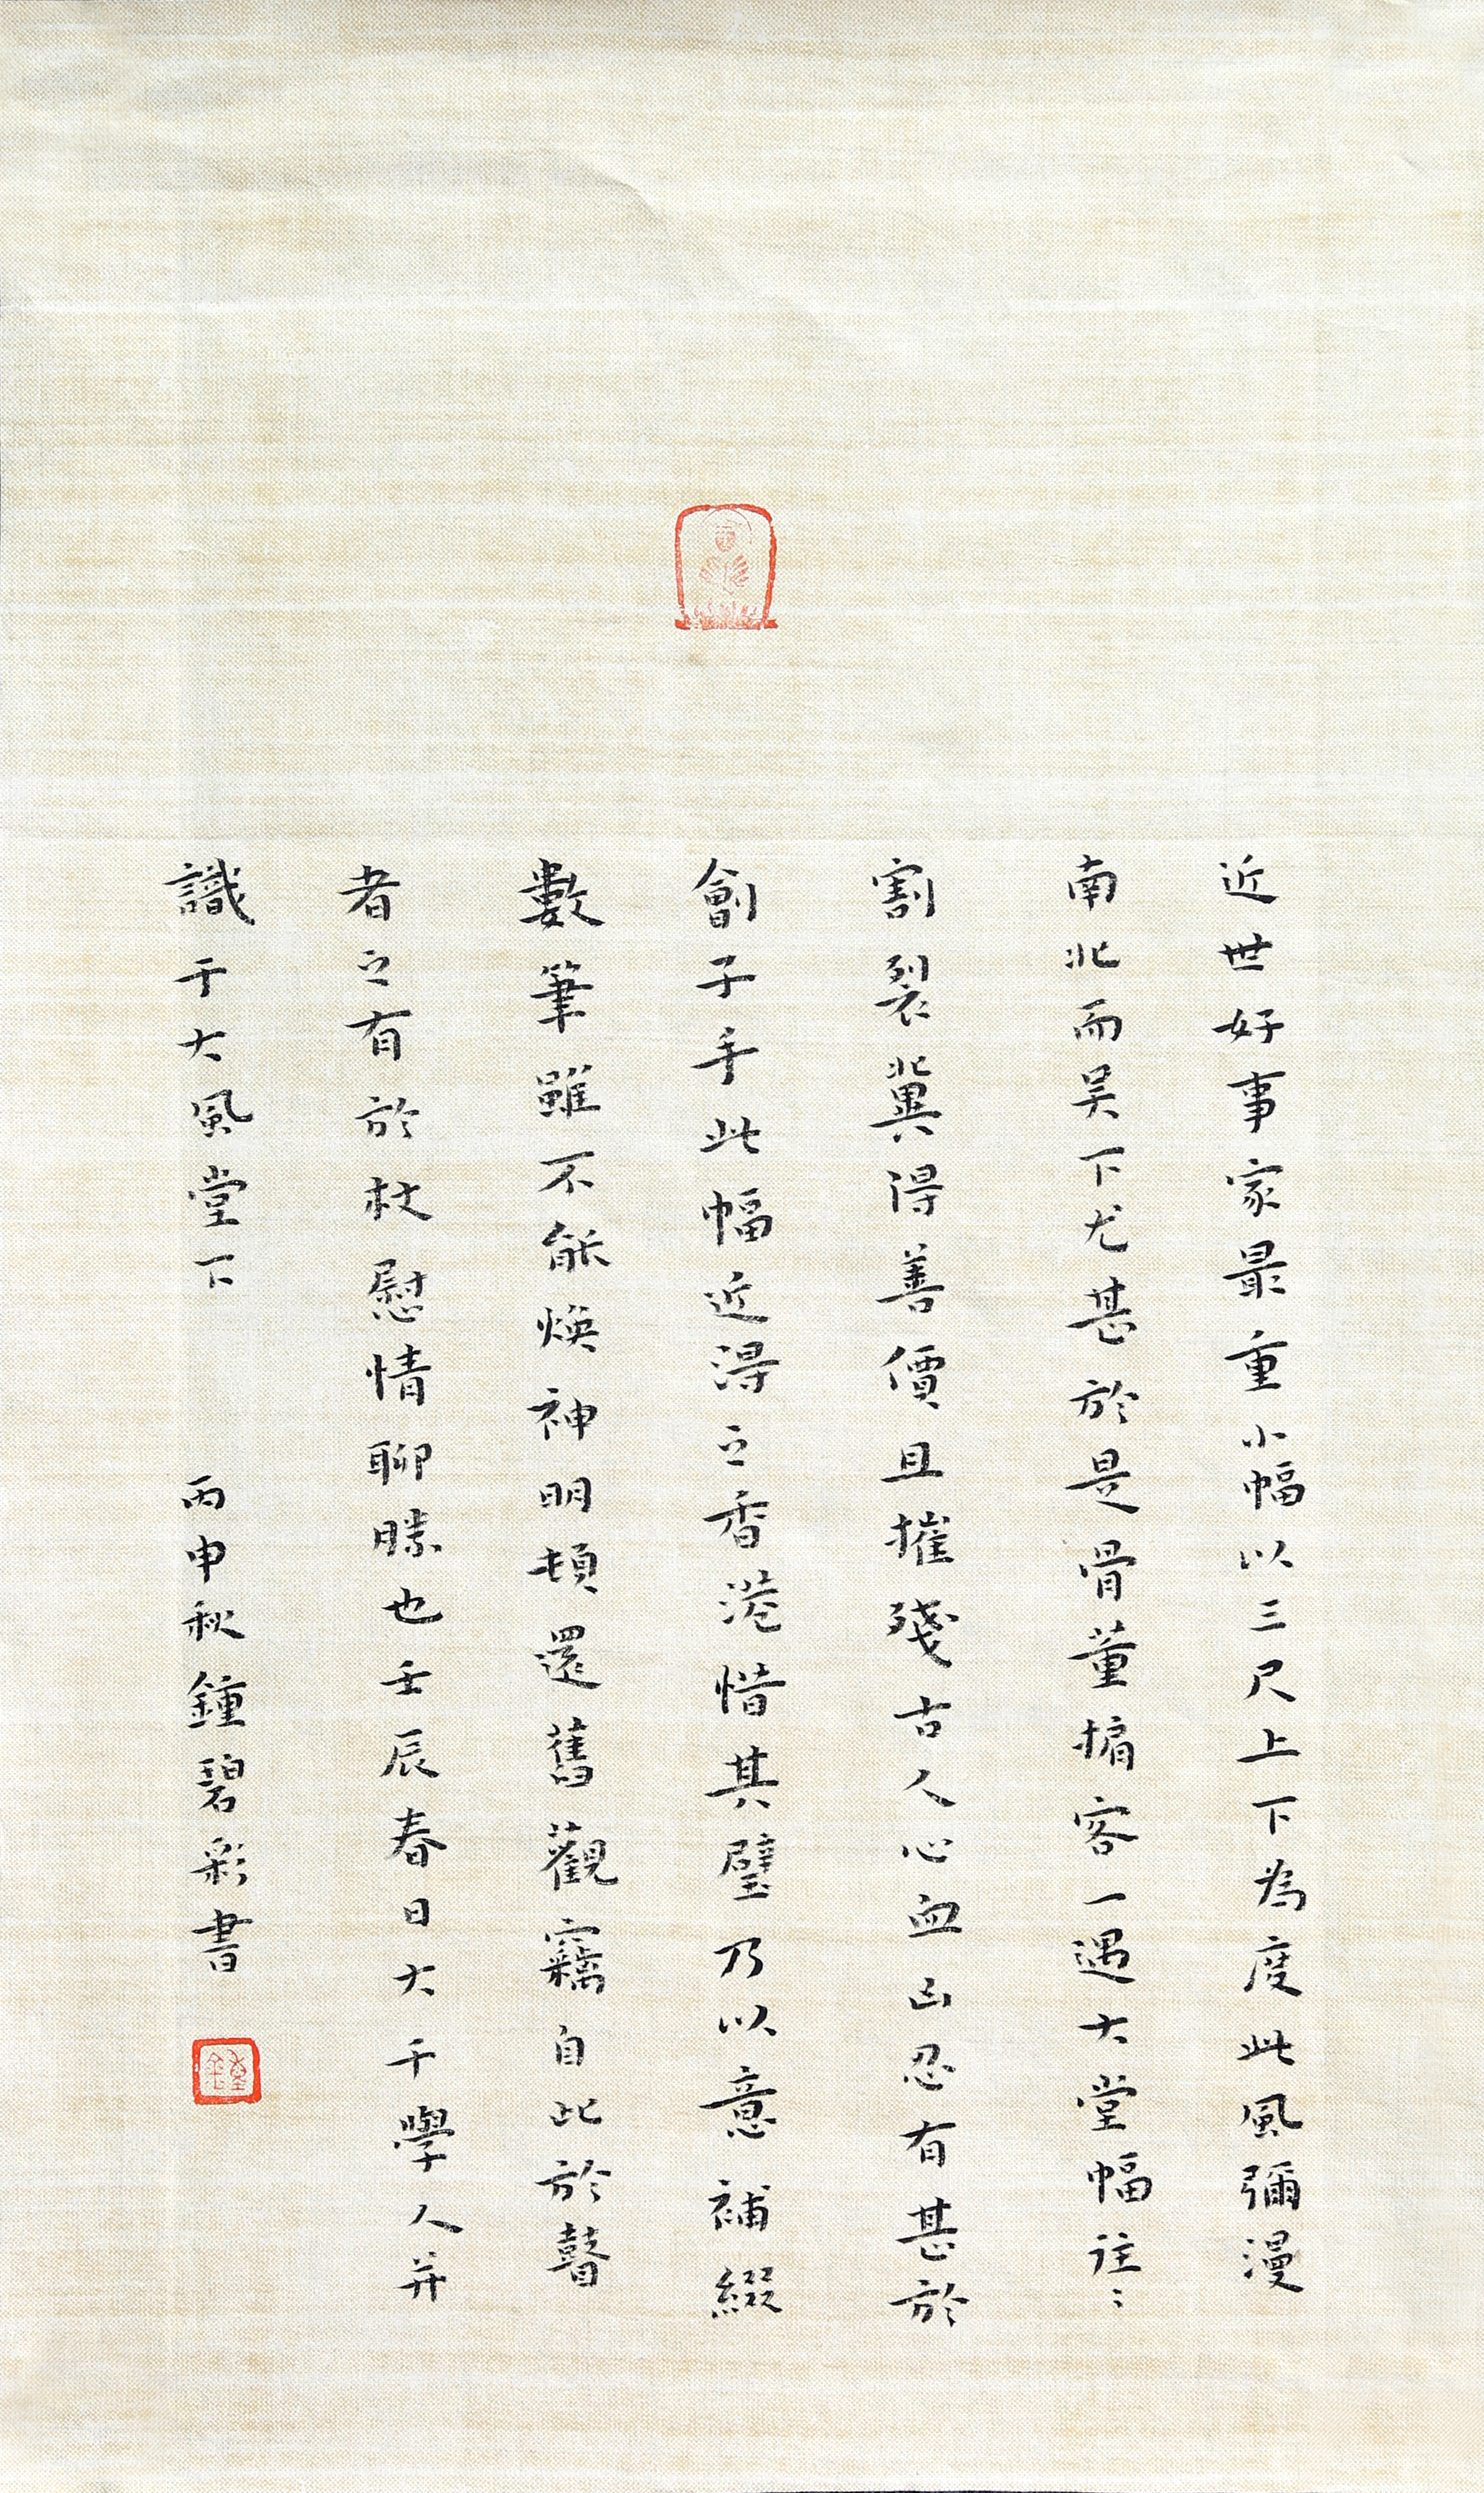 近世好事家最重小幅以三尺上下為度此風彌漫
南北而吴下尤甚於是骨董掮客一遇大堂幅往〻
割裂冀得善價且摧殘古人心血凶忍有甚於
劊子手此幅近得之香港惜其璧乃以意補綴
數筆雖不能焕神明頓還舊觀竊自比於瞽
者之有於杖慰情聊勝也壬辰春日大千學人并
識于大風堂下　丙申秋鍾碧彩書
鍾